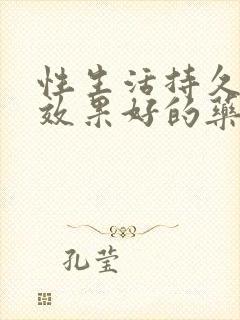 性生活持久
效果好的药
孔莹